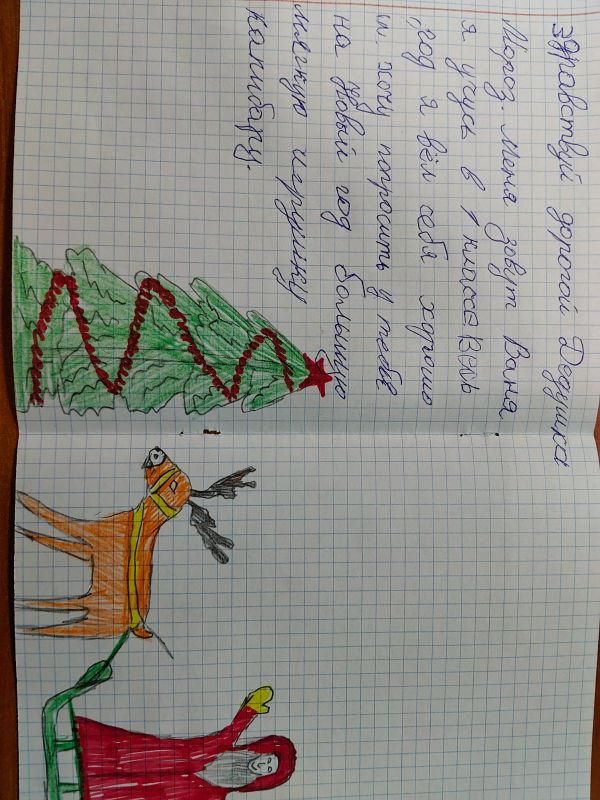 Здравствуй дорогой Дедушка
Мороз. Меня зовут Ваня
я учусь в 1 классе. Весь
год я вёл себя хорошо
и хочу попросить у тебя
на Новый год большую
мягкую игрушку
капибару.